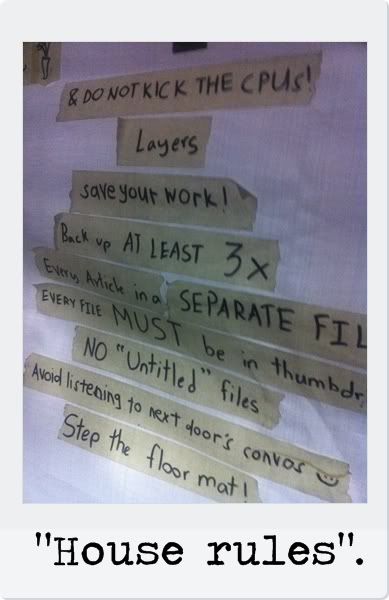 & DO NOT KICK THE CPUs!
Layers
save your work!
Back up AT LEAST 3x
Every Article in a SEPARATE FIL
EVERY FILE MUST be in thumbdr
NO "Untitled" files
Avoid listening to next door's convos
Step the floor mat!
"House rules".